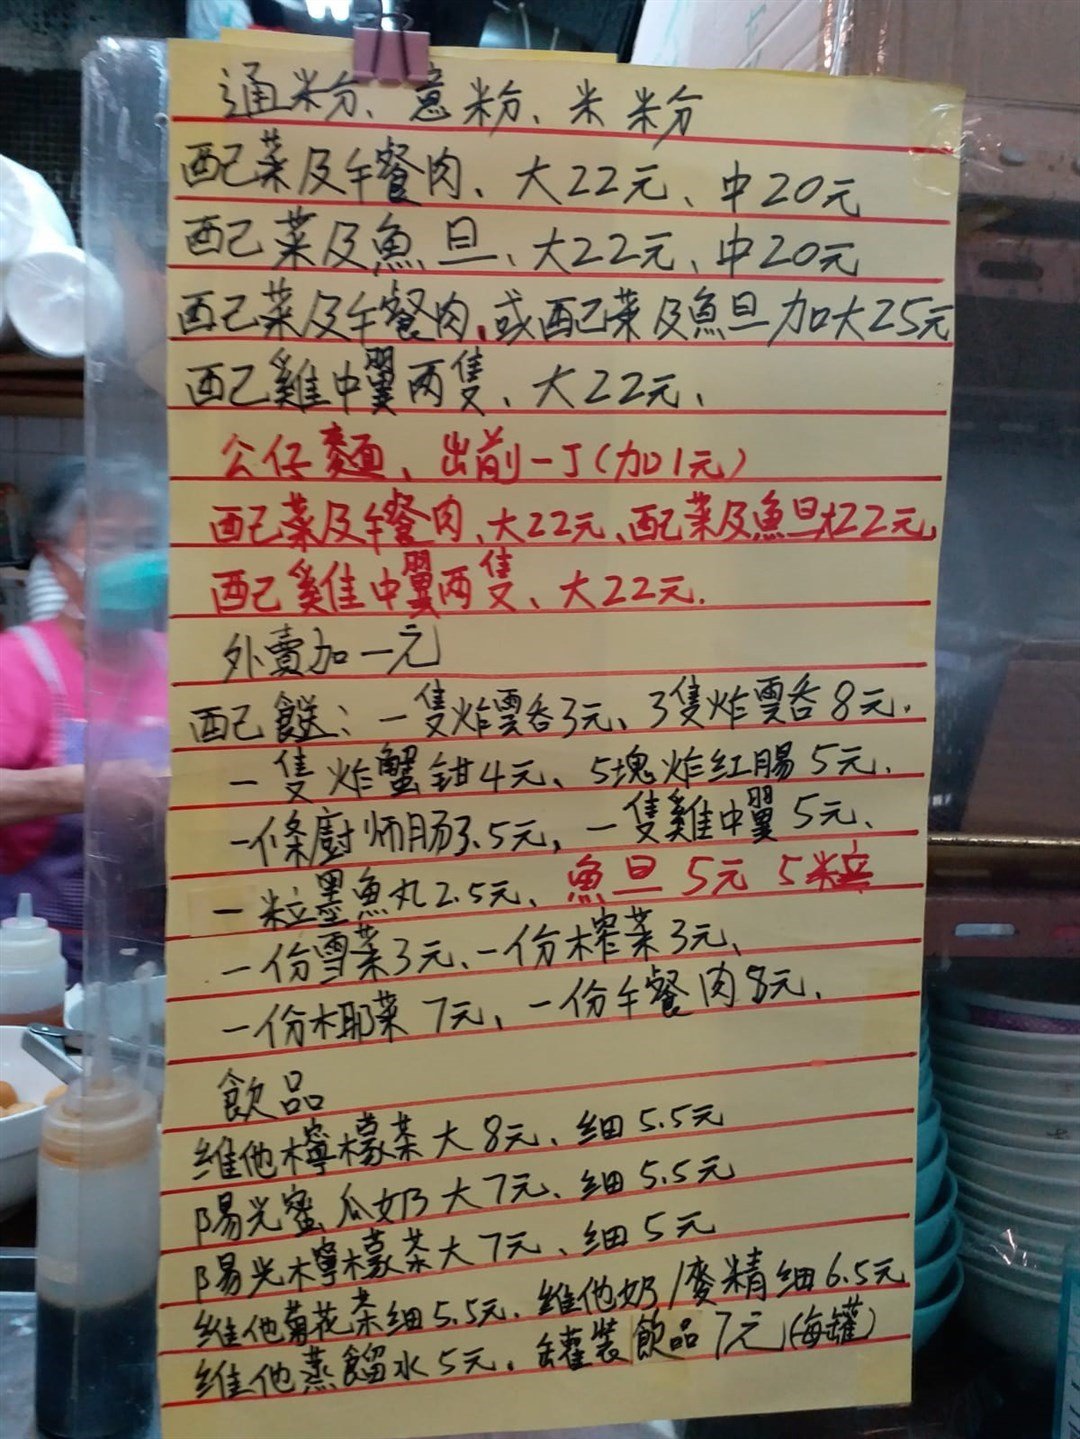 通粉、意粉、米粉
配菜及午餐肉、大22元、中20元
配菜及魚旦、大22元、中20元
配菜及午餐肉、或配菜及魚旦加大25元
配雞中翼両隻、大22元、
公仔麵、出前一丁(加1元)
配菜及午餐肉、大22元、配菜及魚旦大22元、
配雞中翼両隻、大22元.
外賣加一元
配餸：一隻炸雲吞3元、3隻炸雲吞8元.
一隻炸蟹鉗4元、5塊炸红腸5元.
一條廚师肠3.5元, 一隻雞中翼5元、
一粒墨魚丸2.5元、魚旦5元5粒
一份雪菜3元、一份榨菜3元、
一份椰菜7元、一份午餐肉8元、
飲品
維他檸檬茶大8元、細5.5元
陽光蜜瓜奶大7元、細5.5元
陽光檸檬茶大7元、細5元
維他菊花茶細5.5元. 維他奶/麥精細6.5元
維他蒸餾水5元. 罐裝飲品7元(每罐)